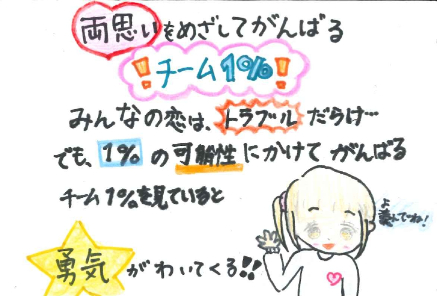 両思いをめざしてがんばる
!チーム1%!
みんなの恋は、トラブルだらけ…
でも、1%の可能性にかけてがんばる
チーム1%を見ていると
勇気がわいてくる!!